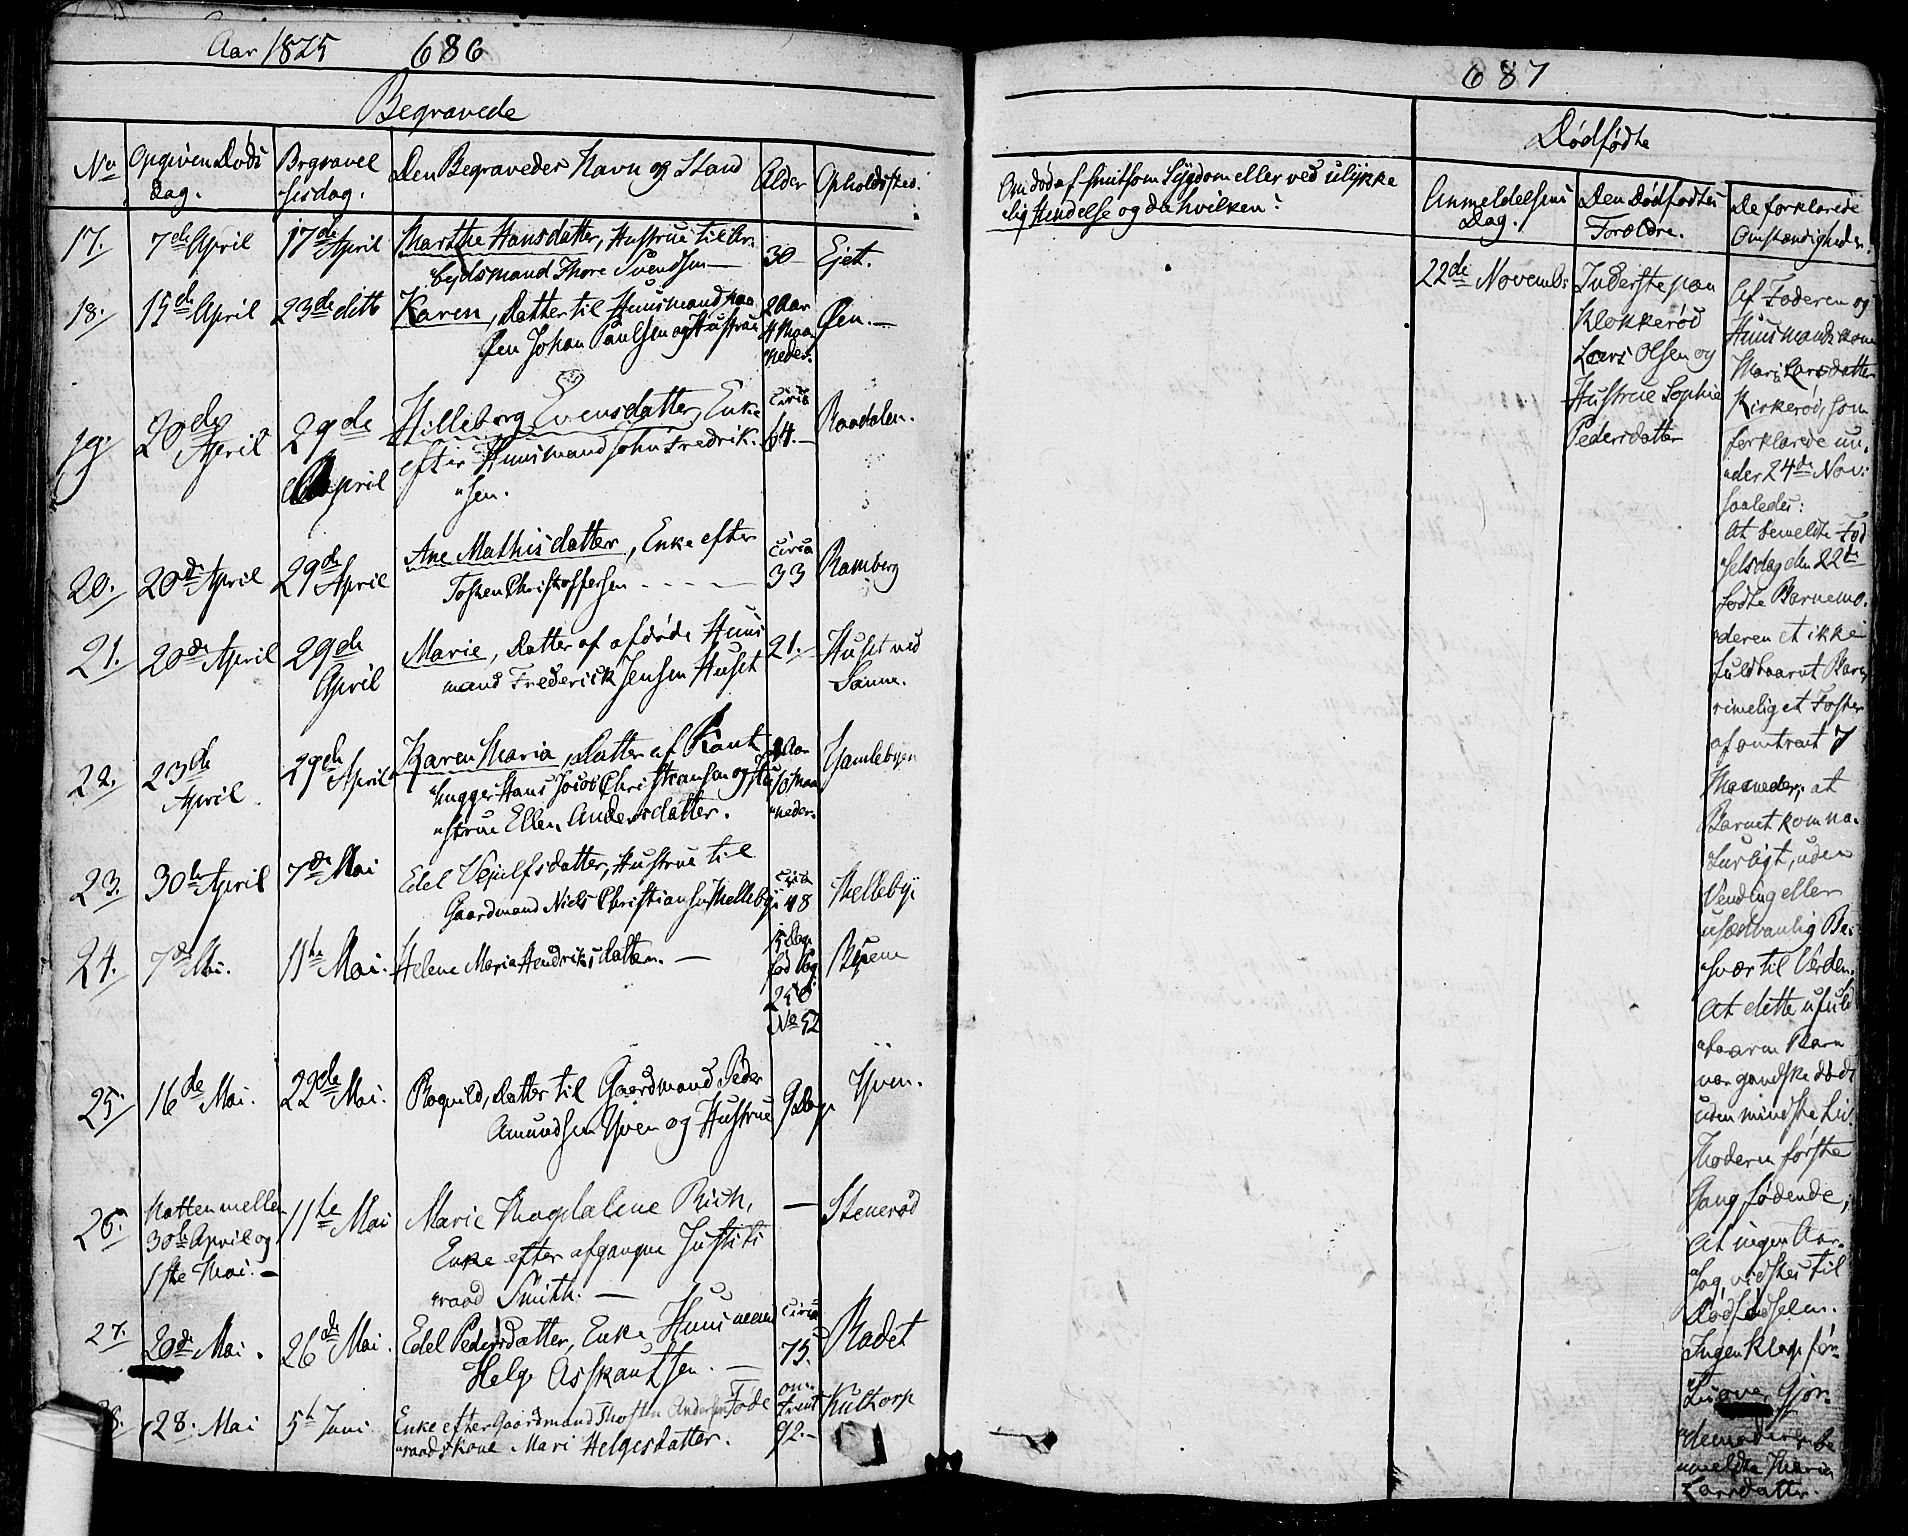 Aar 1825 686
Begravede
No
Opgiven Døds
Dag.
Begravel
sesdag.
Den Begravedes Navn og Stand
Alder
Opholdssted.
17. 7de April 17de April Marthe Hansdatter, Hustrue til Ar-
bejdsmand Thore Svendsen — 30 — Ejet.
18. 15de April 23de ditto Karen, Datter til Huusmand paa
Øen Johan Paulsen og Hustrue
2 Aar
4 Maa
neder.
Øen. —
19. 20de
April
29de
April
Hilleborg Evensdatter, Enke
efter Huusmand John Fredrik-
sen.
circa
64. —
Raadalen.
20. 20de April 29de
April
Ane Mathisdatter, Enke efter
Christoffersen
circa
33
Ramberg
21. 20de April 29de
April
Marie, Datter af afdøde Huus
mand Frederick Jensen Huset
21. — Huset ved
Sanne.
22. 23de
April
29de
April
Karen Maria, Datter af
hugger Hans Jacob Christiansen og Hu
strue Ellen Andersdatter.
Aar
10 Maa
neder.
Gamlebyen
23. 30te April 7de Mai Edel Vejulfsdatter, Hustrue til
Gaardmand Niels Christiansen Thelleby
circa
48
Thellebye
24. 7de Mai. 11te Mai. Helene Maria Hendriksdatter. —
5 Dage
fød Pag
250
No 52
25. 16de Mai. 22de Mai. Ragnild, Datter til Gaardmand Peder
Amundsen Yven og Hustrue
9 Dage Yven.
26. Natten mellem
30te April og
1ste Mai. —
11te Mai Marie Magdalene Rick,
Enke efter afgangne Justits
raad Smith. —
— Stenerød
27. 20de Mai. 26de Mai. Edel Pedersdatter, Enke Huusmand
Helge Asskautsen. —
circa
75.
Rødet
28. 28. Mai 5te Juni Enke efter Gaardmand Thosten Andersen Føde
raadskone Mari Helgesdatter.
om-
trent
92. —
Kultorp
687
Om død af smitsom Sygdom eller ved ulykke
lig Hendelse og da hvilken?
Dødfødte
Anmeldelsens
Dag.
Den Dødfødtes
Forældre.
De forklarede
Omstændigheder.
22de Novemb:
Inderste paa
Klokkerød
Lars Olsen og
Hustrue Sophie
Pedersdatter
Af Faderen og
Huusmandskone
Mari Larsdatter
Kirkerød, som
forklarede un-
der 24de Nov:
saaledes:
At bemeldte Fød
selsdag den 22de
fødte Barnemo-
deren et ikke
fuldbaaret Barn,
rimeligt Foster
af omtrent 7
Maaneder; at
Barnet kom na-
turligt, uden
Vending eller
usædvanlig Be-
svær til Verden.
At dette ufuld
baaren Barn
var gandske dødt
uden mindste Liv.
Moderen første
Gang fødende;
At ingen Aar-
sag vidstes til
Dødfødselen.
Ingen Klage før-
tes over Gjor-
demoderen be
meldte Maria
Larsdatter.